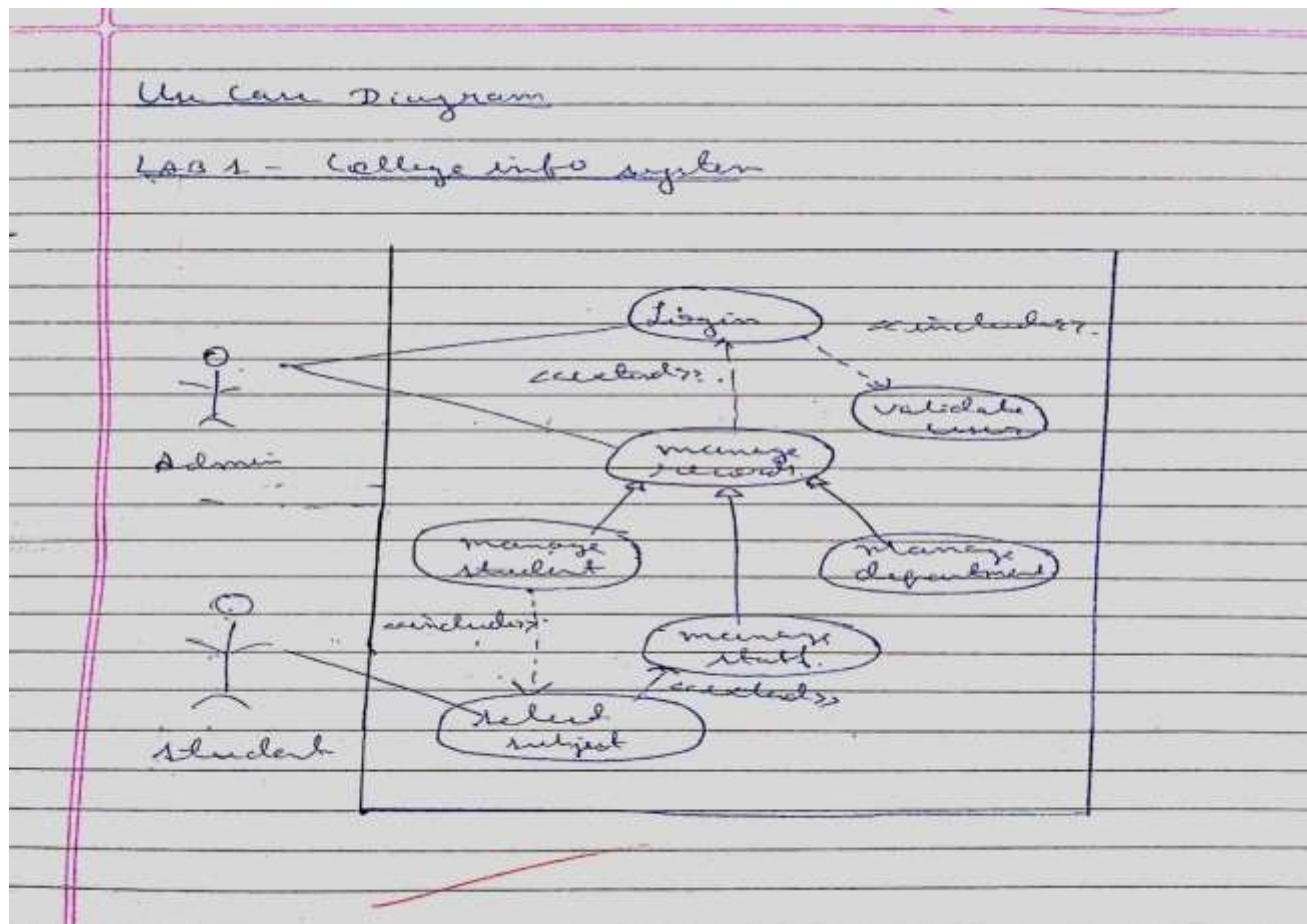 Use Case Diagram
LAB 1 - College info system
Login
<<include>>.
<<extend>>.
validate
user
manage
records.
Admin
manage
student
manage
department
<<include>>.
manage
staff.
<<extend>>
select
subject
student